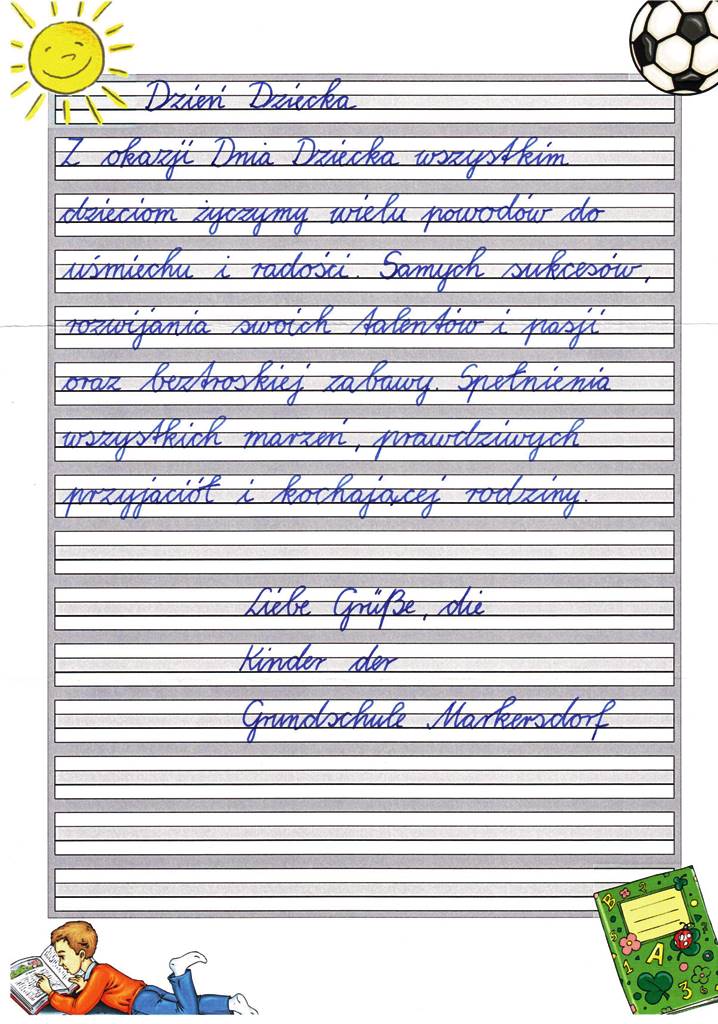 Dzień Dziecka
Z okazji Dnia Dziecka wszystkim
dzieciom życzymy wielu powodów do
uśmiechu i radości. Samych sukcesów,
rozwijania swoich talentów i pasji
oraz beztroskiej zabawy. Spełnienia
wszystkich marzeń, prawdziwych
przyjaciół i kochającej rodziny.
Liebe Grüße, die
Kinder der
Grundschule Markersdorf
B 2
A
1
3